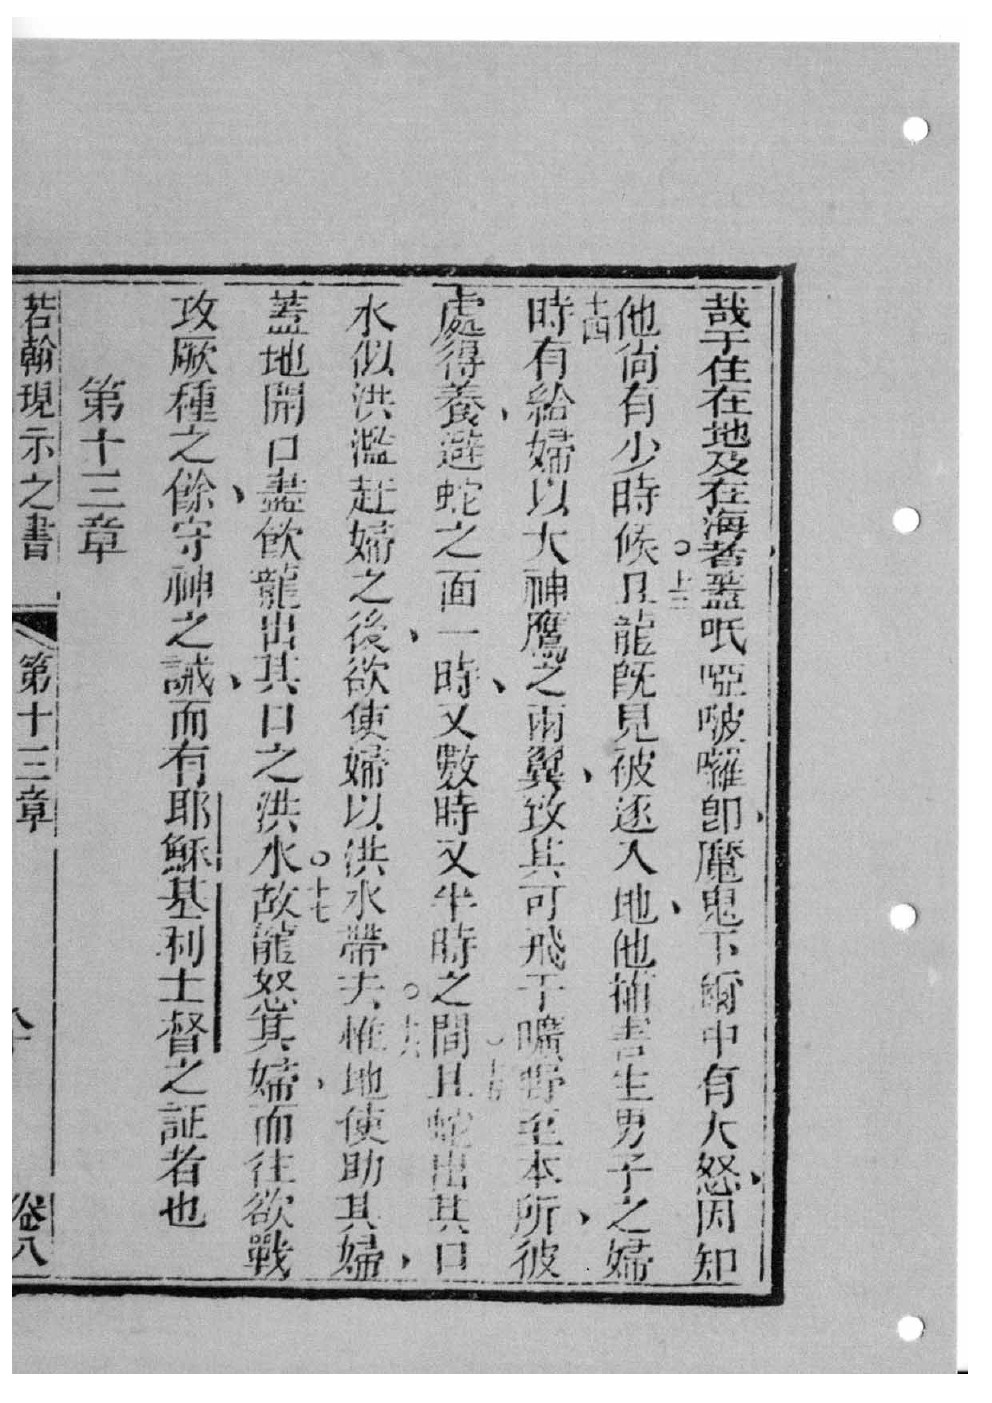 哉于住在地及在海者蓋呧啞啵囉卽魔鬼下爾中有大怒因知
他尙有少時候十三且龍旣見被逐入地他捕害生男子之婦
十四時有給婦以大神鷹之兩翼致其可飛于曠野至本所彼
處得養避蛇之面一時又數時又半時之間十五且蛇出其口
水似洪濫赶婦之後欲使婦以洪水帶去十六惟地使助其婦
蓋地開口盡飲龍出其口之洪水十七故龍怒其婦而往欲戰
攻厥種之餘守神之誡而有耶穌基利士督之証者也
第十三章
若翰現示之書 第十三章 卷八